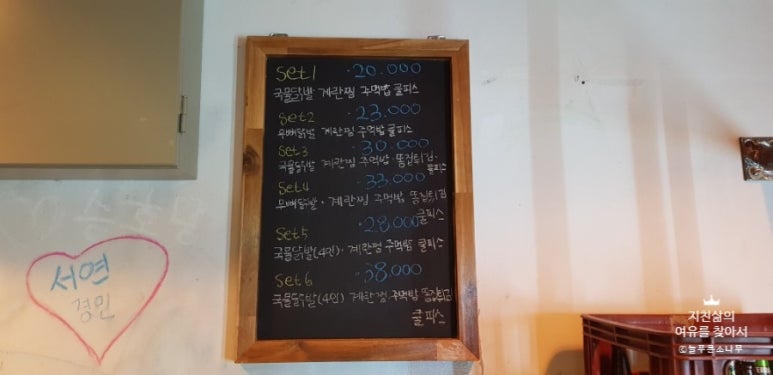 Set1 · 20.000
국물닭발 계란찜 주먹밥 쿨피스
Set2 · 23.000
무뼈닭발 계란찜 주먹밥 쿨피스
Set3 · 30.000
국물닭발 계란찜 주먹밥 똥집튀김
쿨피스
Set4 · 33.000
무뼈닭발 · 계란찜 주먹밥 똥집튀김
쿨피스
Set5 · 28.000
국물닭발(4인) · 계란찜 주먹밥 쿨피스
Set6 · 38.000
국물닭발(4인) 계란찜 주먹밥 똥집튀김
쿨피스
서연
경민
지친삶의
여유를 찾아서
©늘푸른소나무